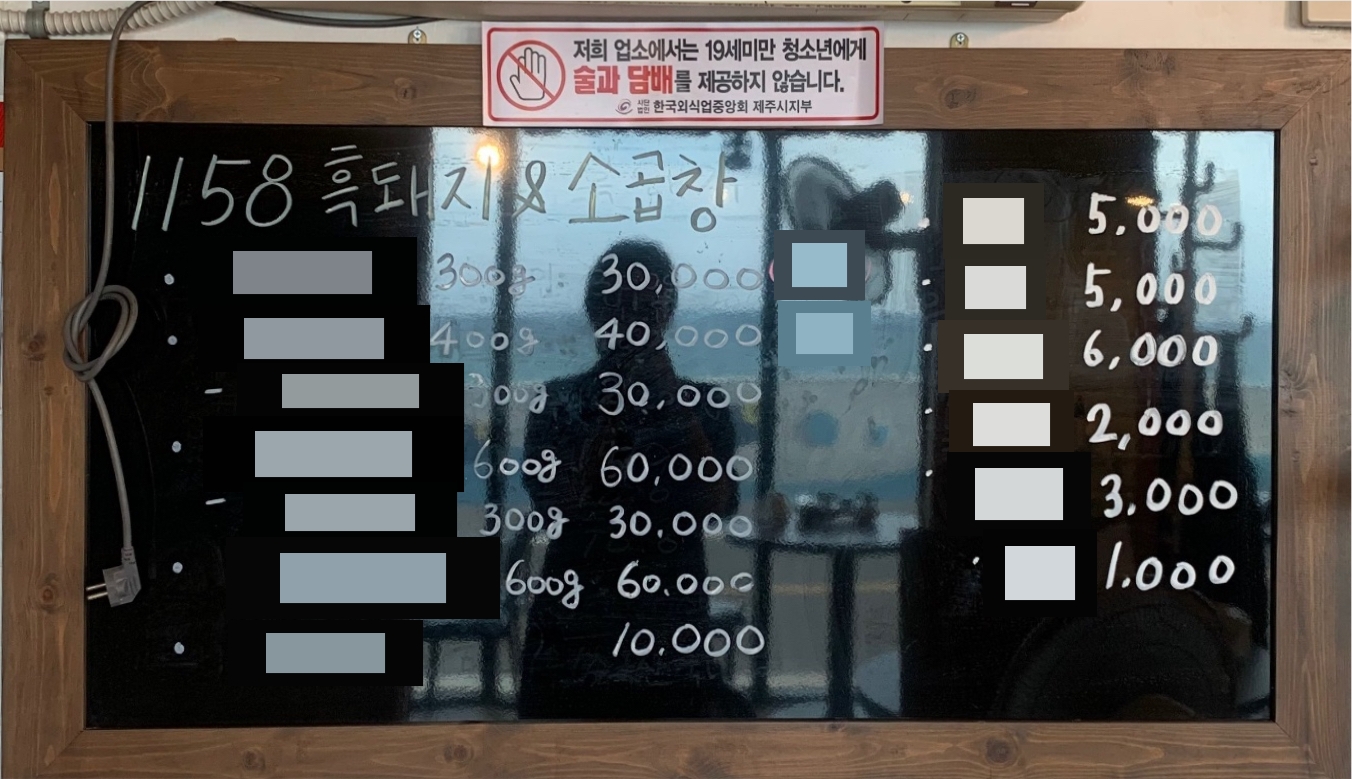 저희 업소에서는 19세미만 청소년에게
술과 담배를 제공하지 않습니다.
사단법인 한국외식업중앙회 제주시지부
1158 흑돼지 & 소곱창
· 300g 30,000
· 400g 40,000
- 300g 30,000
· 600g 60,000
- 300g 30.000
· 600g 60.000
· 10.000
· 5,000
· 5,000
· 6,000
· 2,000
· 3.000
· 1.000